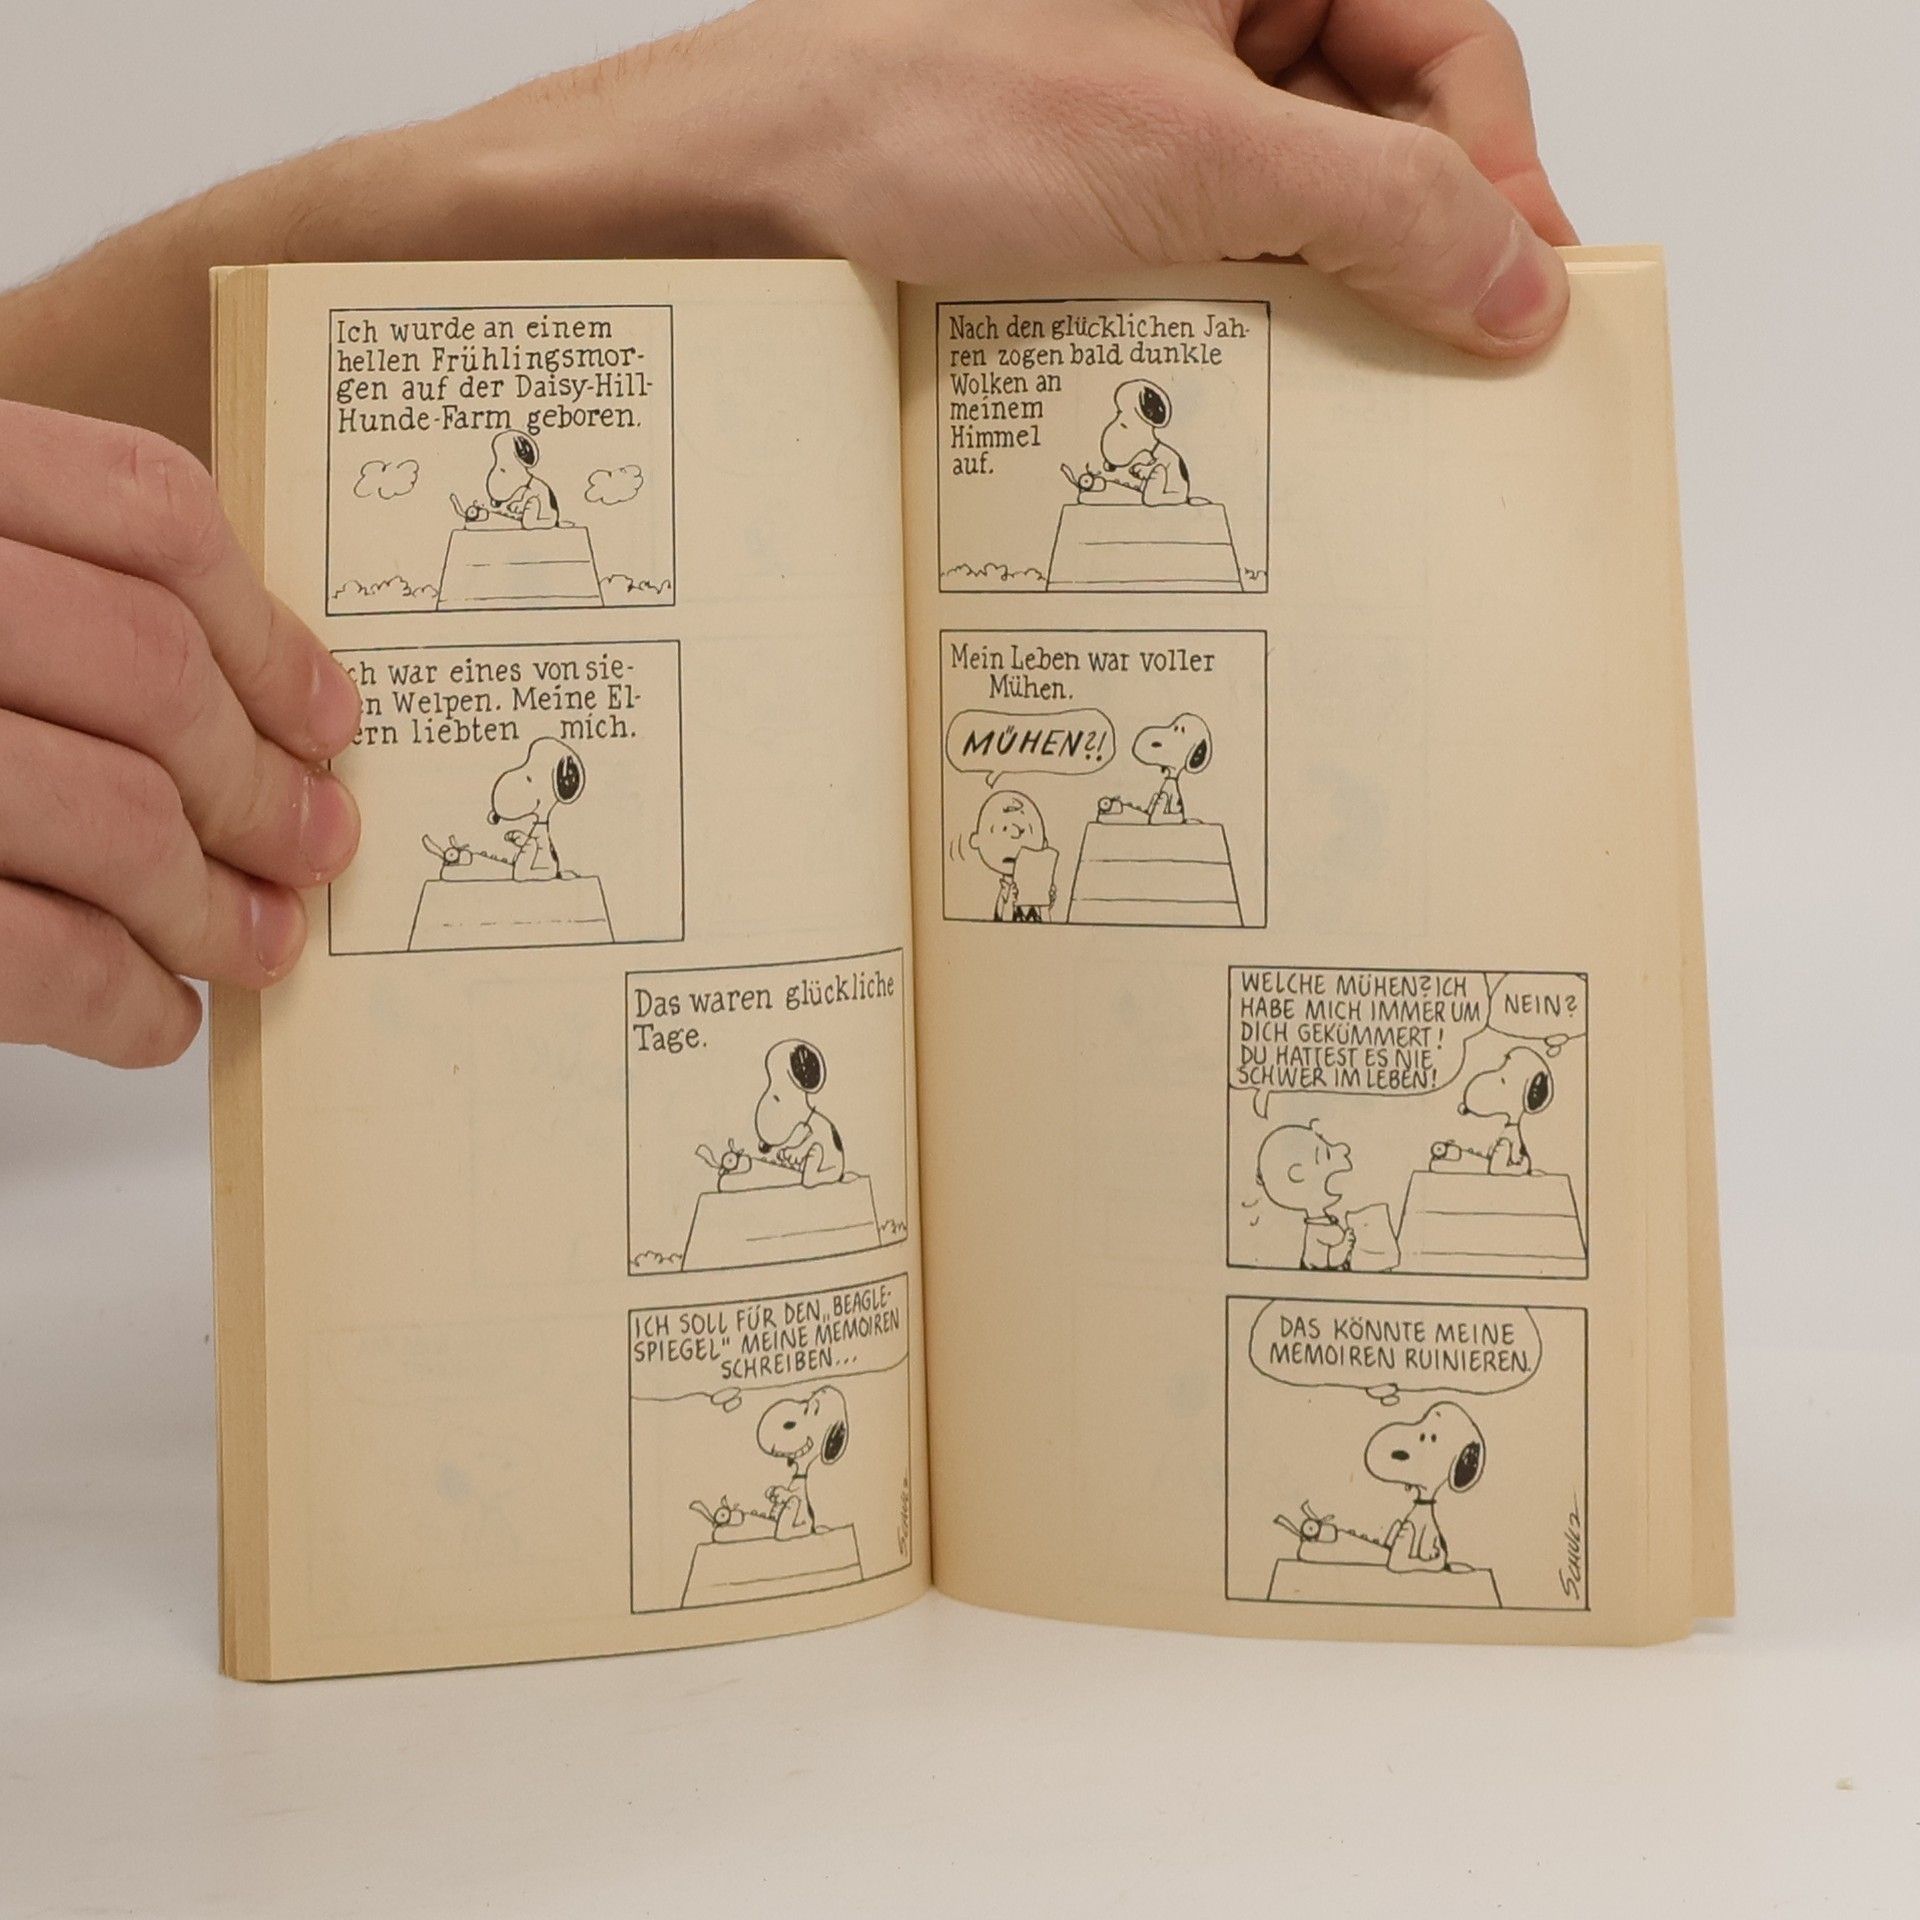 Ich wurde an einem
hellen Frühlingsmor-
gen auf der Daisy-Hill-
Hunde-Farm geboren.
ch war eines von sie-
en Welpen. Meine El-
ern liebten mich.
Das waren glückliche
Tage.
ICH SOLL FÜR DEN „BEAGLE-
SPIEGEL" MEINE MEMOIREN
SCHREIBEN...
SCHULZ
Nach den glücklichen Jah-
ren zogen bald dunkle
Wolken an
meinem
Himmel
auf.
Mein Leben war voller
Mühen.
MÜHEN?!
WELCHE MÜHEN? ICH
HABE MICH IMMER UM
DICH GEKÜMMERT!
DU HATTEST ES NIE
SCHWER IM LEBEN!
NEIN?
DAS KÖNNTE MEINE
MEMOIREN RUINIEREN.
SCHULZ